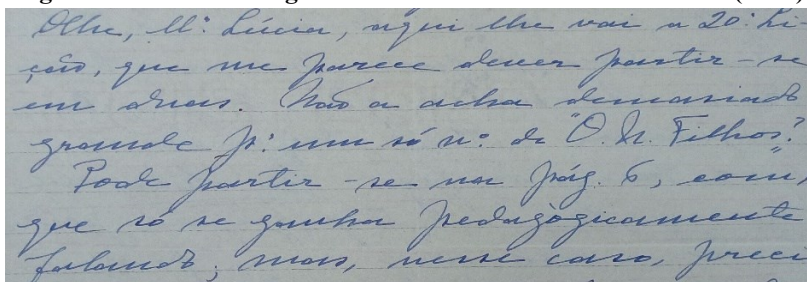 Olhe, M.ª Lúcia, aqui lhe vai a 20.ª Li
ção, que me parece dever partir-se
em duas. Não a acha demasiado
grande p.ª um só n.º de "O. N. Filhos"?
Pode partir-se na pág. 6, com,
que só se ganha pedagògicamente
falando; mas, nesse caso, preci